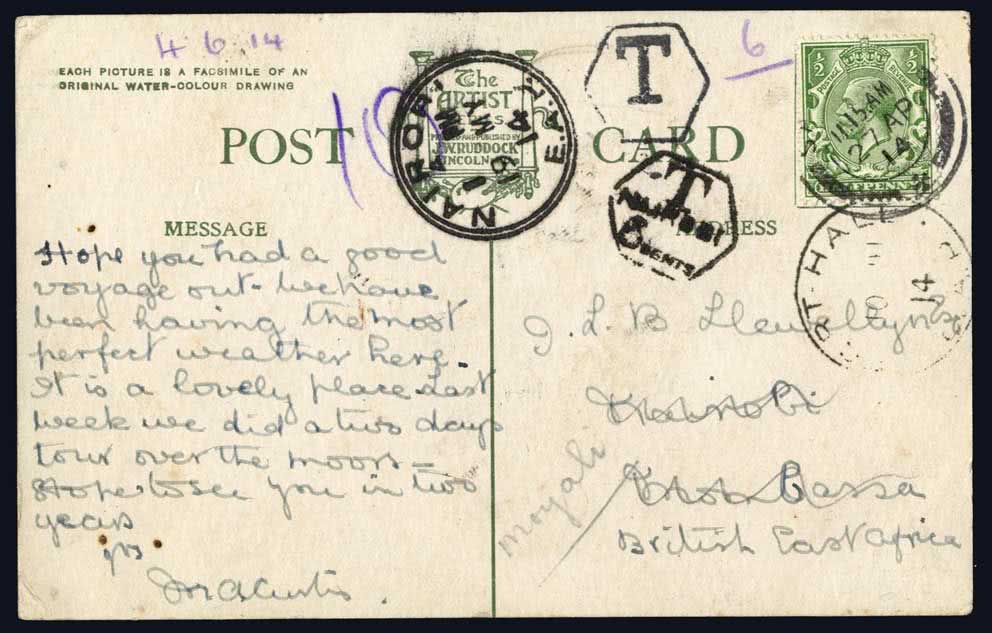 4 6 14
6
EACH PICTURE IS A FACSIMILE OF AN
ORIGINAL WATER-COLOUR DRAWING
10
POST CARD
The
ARTIST
SERIES
PRINTED AND PUBLISHED BY
J.W. RUDDOCK
LINCOLN
NAIROBI
B.E.A.
19
MY
T
T
NAIROBI
6 CENTS
½ ½
POSTAGE REVENUE
HALFPENNY
11 15 AM
27 AP
14
FORT-HALL
14
MESSAGE
ADDRESS
Hope you had a good
voyage out - we have
been having the most
perfect weather here.
It is a lovely place last
week we did a two days
tour over the moors -
Hope to see you in two
years
yrs
J. L. B. Llewellyn
Nairobi
Moyali
British East Africa